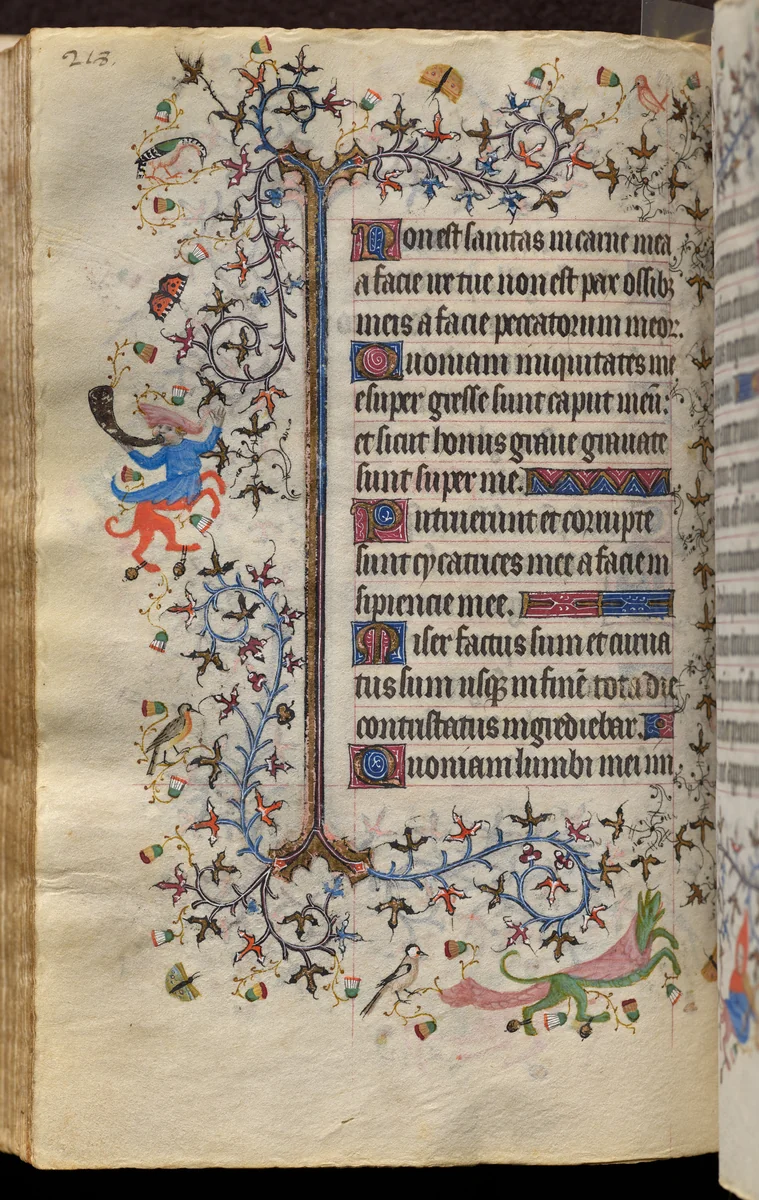 213.
Non est sanitas in carne mea
a facie ire tue non est pax ossibꝫ
meis a facie peccatorum meor.
Quoniam iniquitates me
e super gresse sunt caput meū:
et sicut honus graue grauate
sunt super me.
Putruerunt et corrupte
sunt cycatrices mee a facie in
sipiencie mee.
Miser factus sum et curua
tus sum usqꝫ in finē tota die
contristatus ingrediebar.
Quoniam lumbi mei im